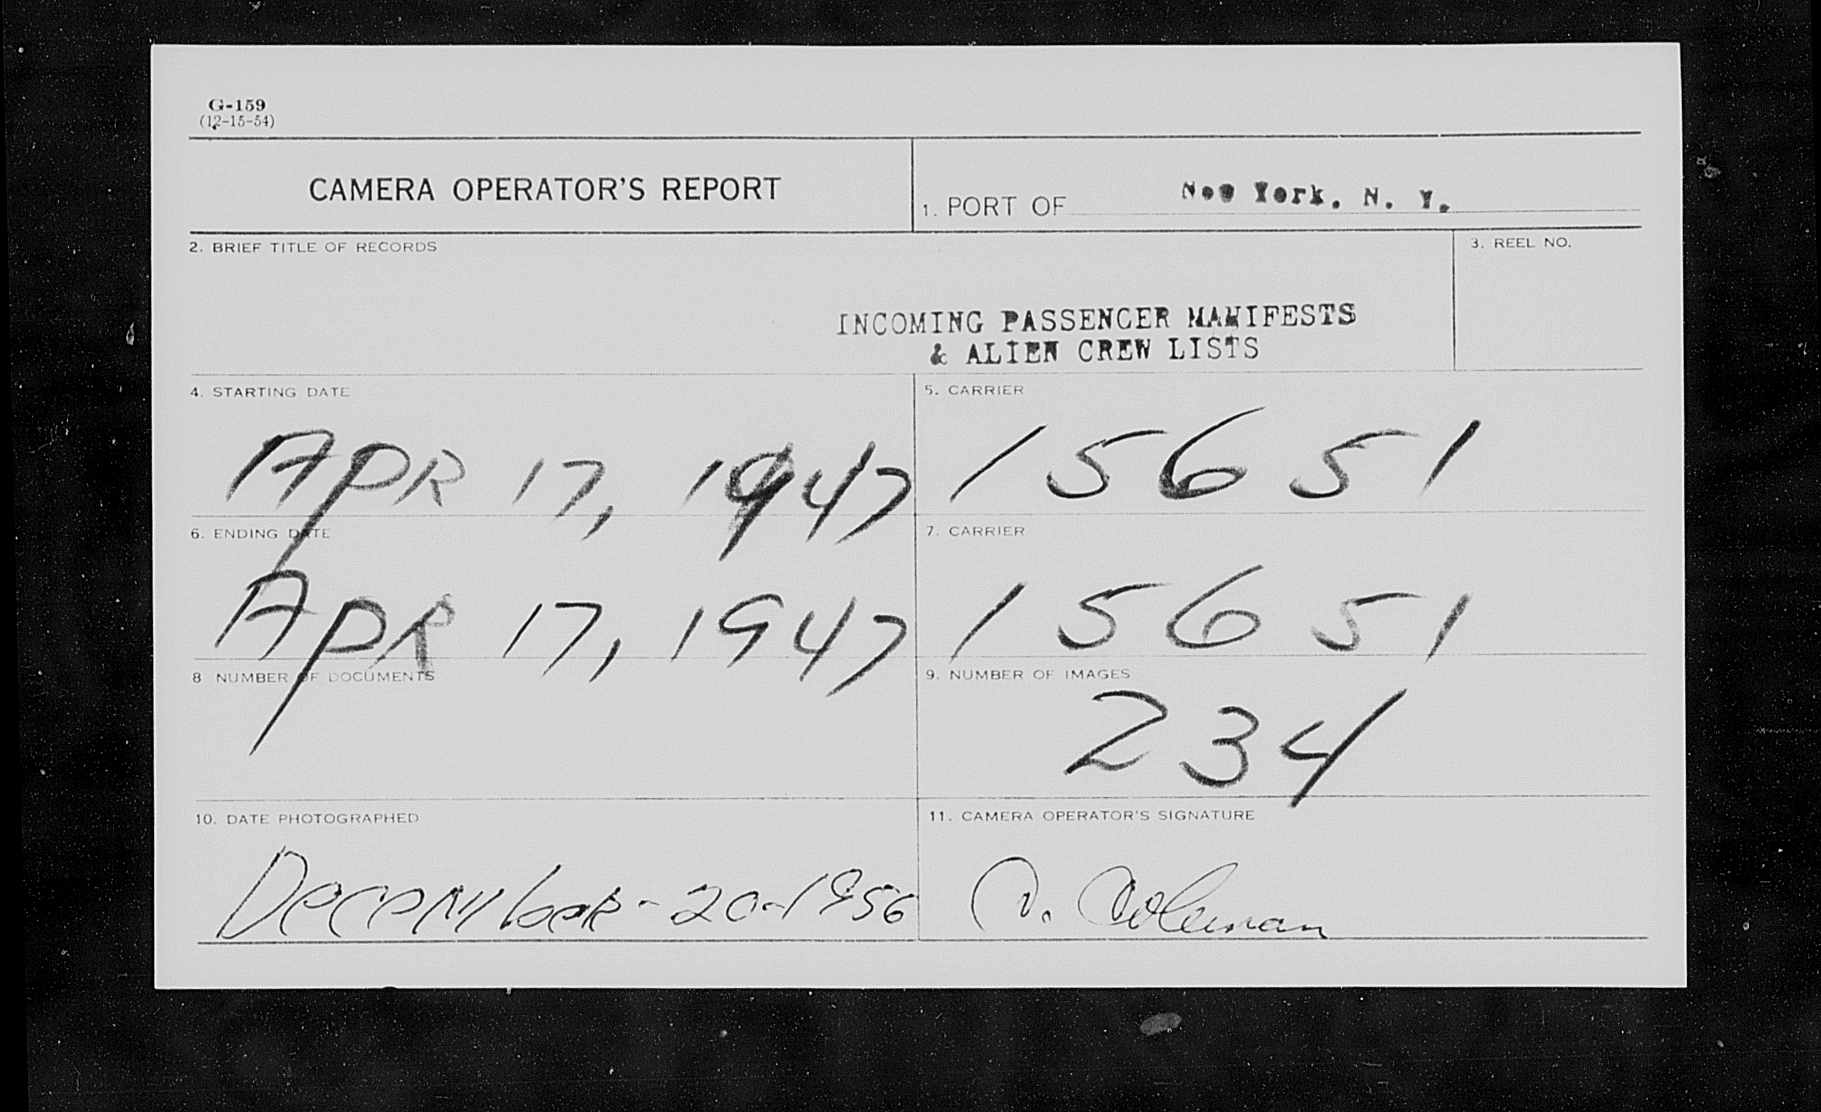 G-159
(12-15-54)
CAMERA OPERATOR'S REPORT
1. PORT OF New York, N. Y.
2. BRIEF TITLE OF RECORDS
3. REEL NO.
INCOMING PASSENGER MANIFESTS
& ALIEN CREW LISTS
4. STARTING DATE
5. CARRIER
APR 17, 1947
15651
6. ENDING DATE
7. CARRIER
APR 17, 1947
15651
8 NUMBER OF DOCUMENTS
9. NUMBER OF IMAGES
234
10. DATE PHOTOGRAPHED
11. CAMERA OPERATOR'S SIGNATURE
December-20-1956
Coleman